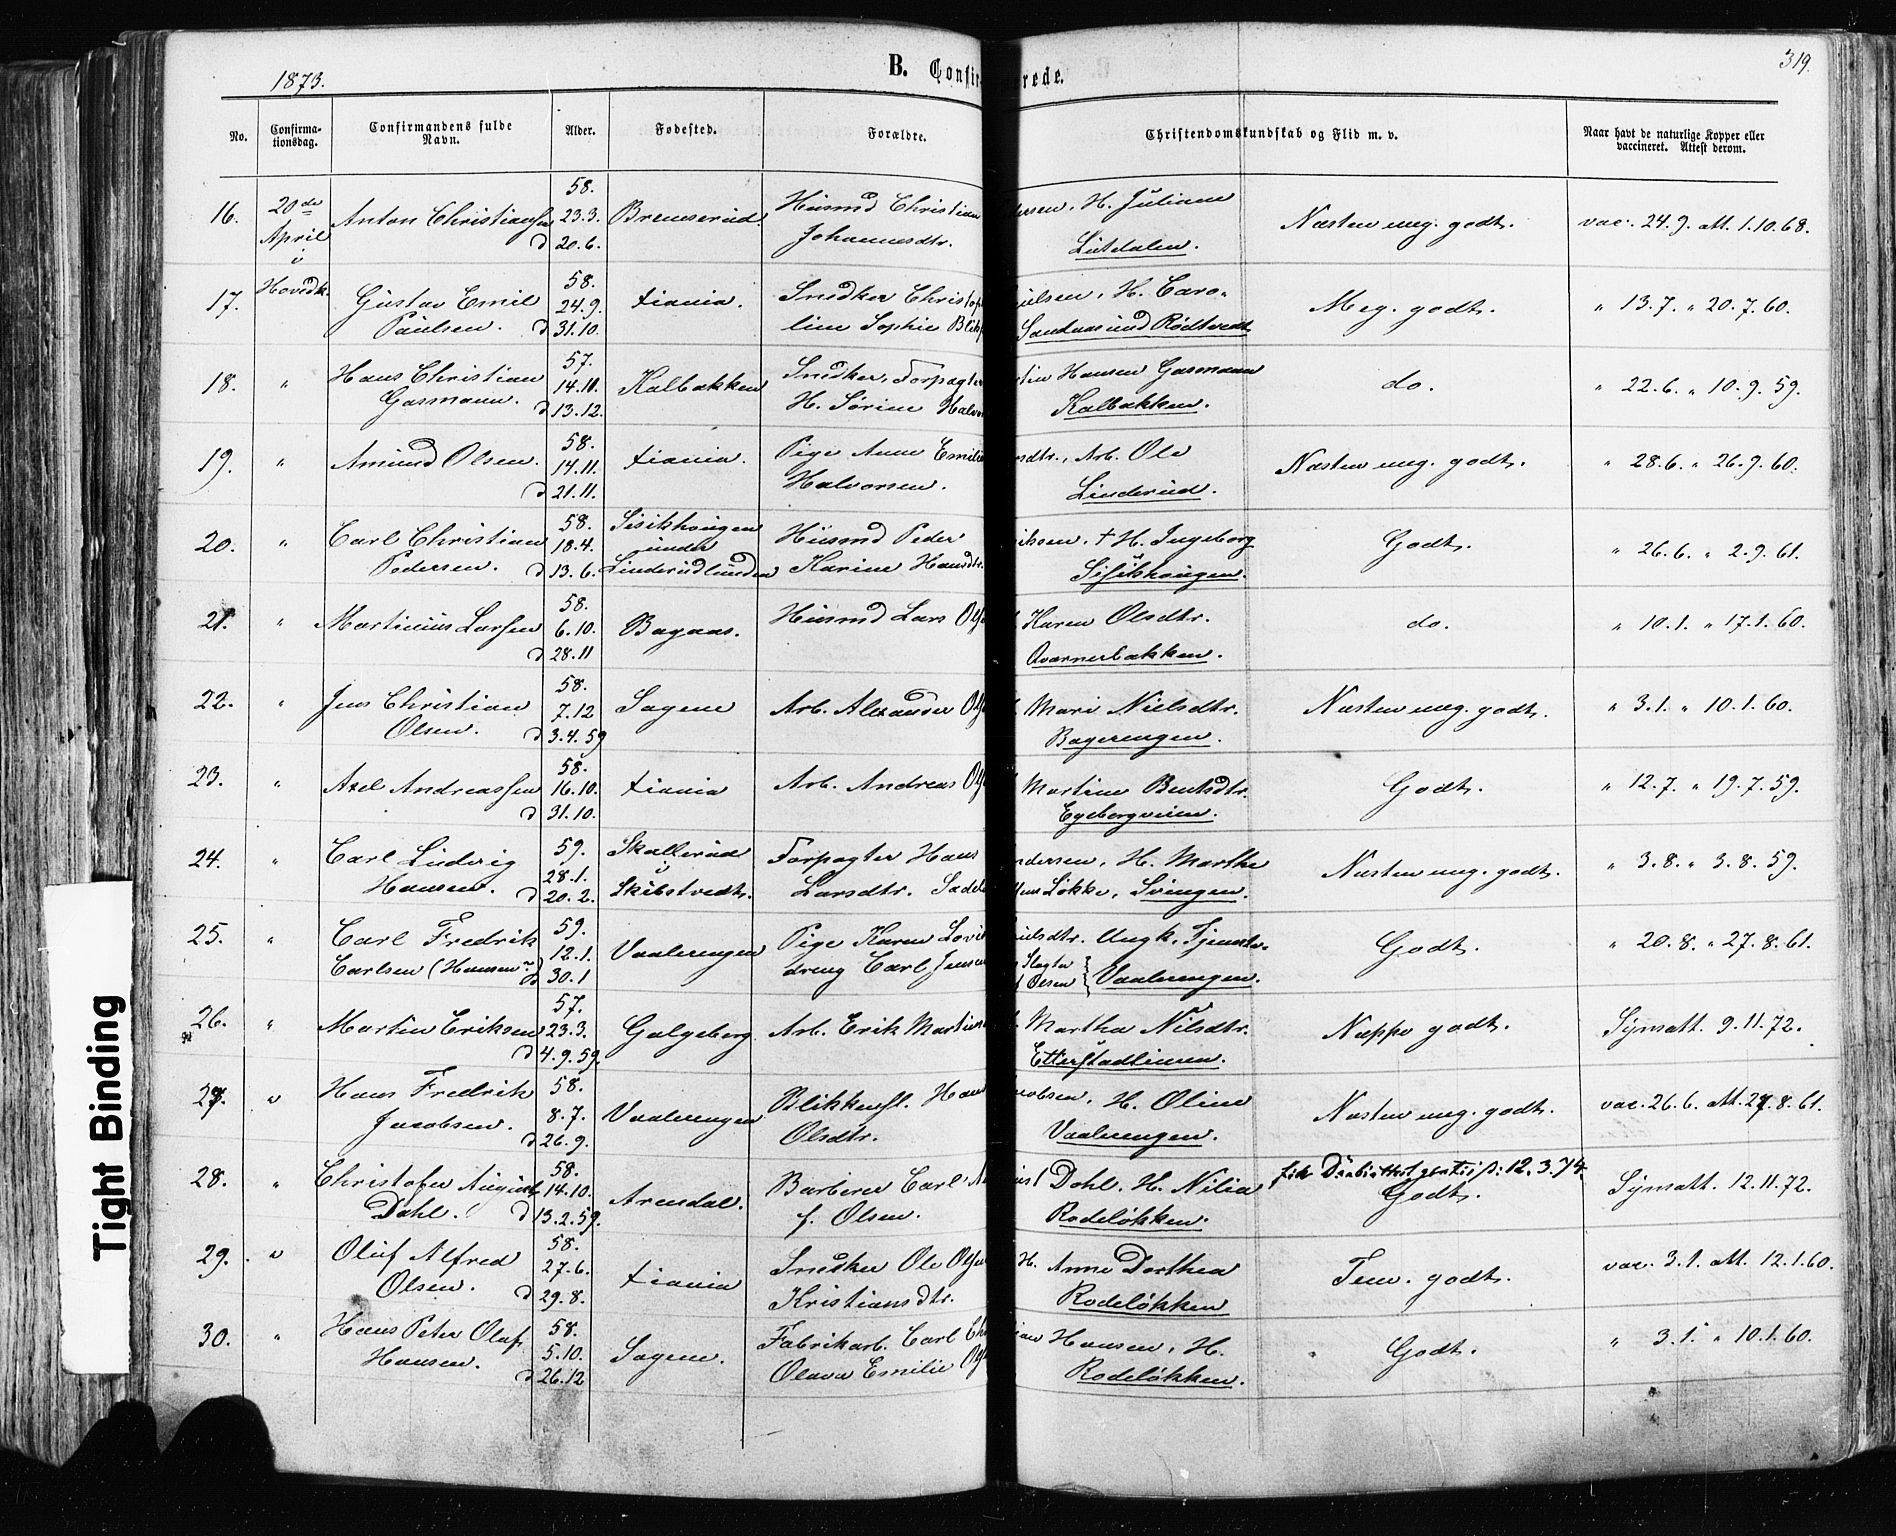 1873.
B. Confir rede.
319.
No. Confirma-tionsdag. Confirmandens fulde Navn. Alder. Fødested. Forældre. Christendomskundskab og Flid m. v. Naar havt de naturlige Kopper eller vaccineret. Attest derom.
58.
16. 20de Anton Christiansen 23.3. Bremserud. Husmd Christian dersen, H. Juliane Næsten meg. godt. vac. 24.9. att. 1.10.68.
April d 20.6. Johannesdtr. Lutdalen.
i
Hovedk. 58.
17. Gustav Emil 24.9. Xiania. Snedker Christof ulsen, H. Caro- Meg. godt. " 13.7. " 20.7.60.
Paulsen. d 31.10. line Sophie Sandaas und Rødtvedt
57.
18. " Hans Christian 14.11. Kalbakken Snedker, Forpagter tin Hansen Gasmann do. " 22.6. " 10.9.59.
Gasmann. d 13.12. H. Sørine Halvor Kalbakken.
58.
19. " Amund Olsen. 14.11. Xiania. Pige Anne Emilie sdtr., Arb. Ole Næsten meg. godt. " 28.6. " 26.9.60.
d 21.11. Halvorsen. Linderud.
58. Sisikhougen
20. " Carl Christian 18.4. under Husmd Peder riksen, + H. Ingeborg Godt. " 26.6. " 2.9.61.
Pedersen. d 13.6. Linderudlunden Karine Hansdtr. Sisikhougen.
58.
21. " Martinius Larsen 6.10. Bagaas. Husmd Lars Ols Karen Olsdtr. do. " 10.1. " 17.1.60.
d 28.11 Qværnerbakken.
58.
22. " Jens Christian 7.12 Sagene Arb. Alexander Ols Mari Nielsdtr. Næsten meg. godt. " 3.1. " 10.1.60.
Olsen. d 3.4.59 Bagerengen.
58.
23. " Axel Andreassen 16.10. Xiania Arb. Andreas Ols Martine Bentsdtr. Godt. " 12.7. " 19.7.59.
d 31.10. Egebergveien.
59. Skallerud
24. " Carl Ludvig 28.1. i Forpagter Hans ndersen, H. Marthe Næsten meg. godt. " 3.8. " 3.8.59.
Hansen. d 20.2. Skibstvedt. Larsdtr. Løkke, Svingen.
59.
25. " Carl Fredrik 12.1. Vaalerengen Pige Karen Lovi ielsdtr. Ungk. Tjeneste- Godt. " 20.8. " 27.8.61.
Carlsen (Hansen?) d 30.1 dreng Carl Jensen Slagter Olsen } Vaalerengen.
57.
26. " Martin Eriksen 23.3. Galgeberg. Arb. Erik Martins Martha Nilsdtr. Næppe godt. Synsatt. 9.11.72.
d 4.9.59. Etterstadlinien.
58.
27. " Hans Fredrik 8.7. Vaalerengen Blikkensl. Hans acobsen, H. Oline Næsten meg. godt. vac. 26.6. att. 27.8.61.
Jacobsen. d 26.9. Olsdtr. Vaalerengen.
58. 12.3.74.
28. " Christofer August 14.10. Arendal. Barberer Carl ust Dahl. H. Nilia Godt. Synsatt. 12.11.72.
Dahl. d 13.2.59. f. Olsen. Rodeløkken.
58.
29. " Oluf Alfred 27.6. Xiania Snedker Ole Olsen H. Anne Dorthea Tem. godt. vac. 3.1. att. 12.1.60.
Olsen. d 29.8. Kristiansdtr. Rodeløkken
58.
30. " Hans Peter Olaf 5.10. Sagene. Fabrikarb. Carl Ch ian Hansen, H. Godt. " 3.1. " 10.1.60.
Hansen. d 26.12 Olava Emilie Ols Rodeløkken.
Tight Binding